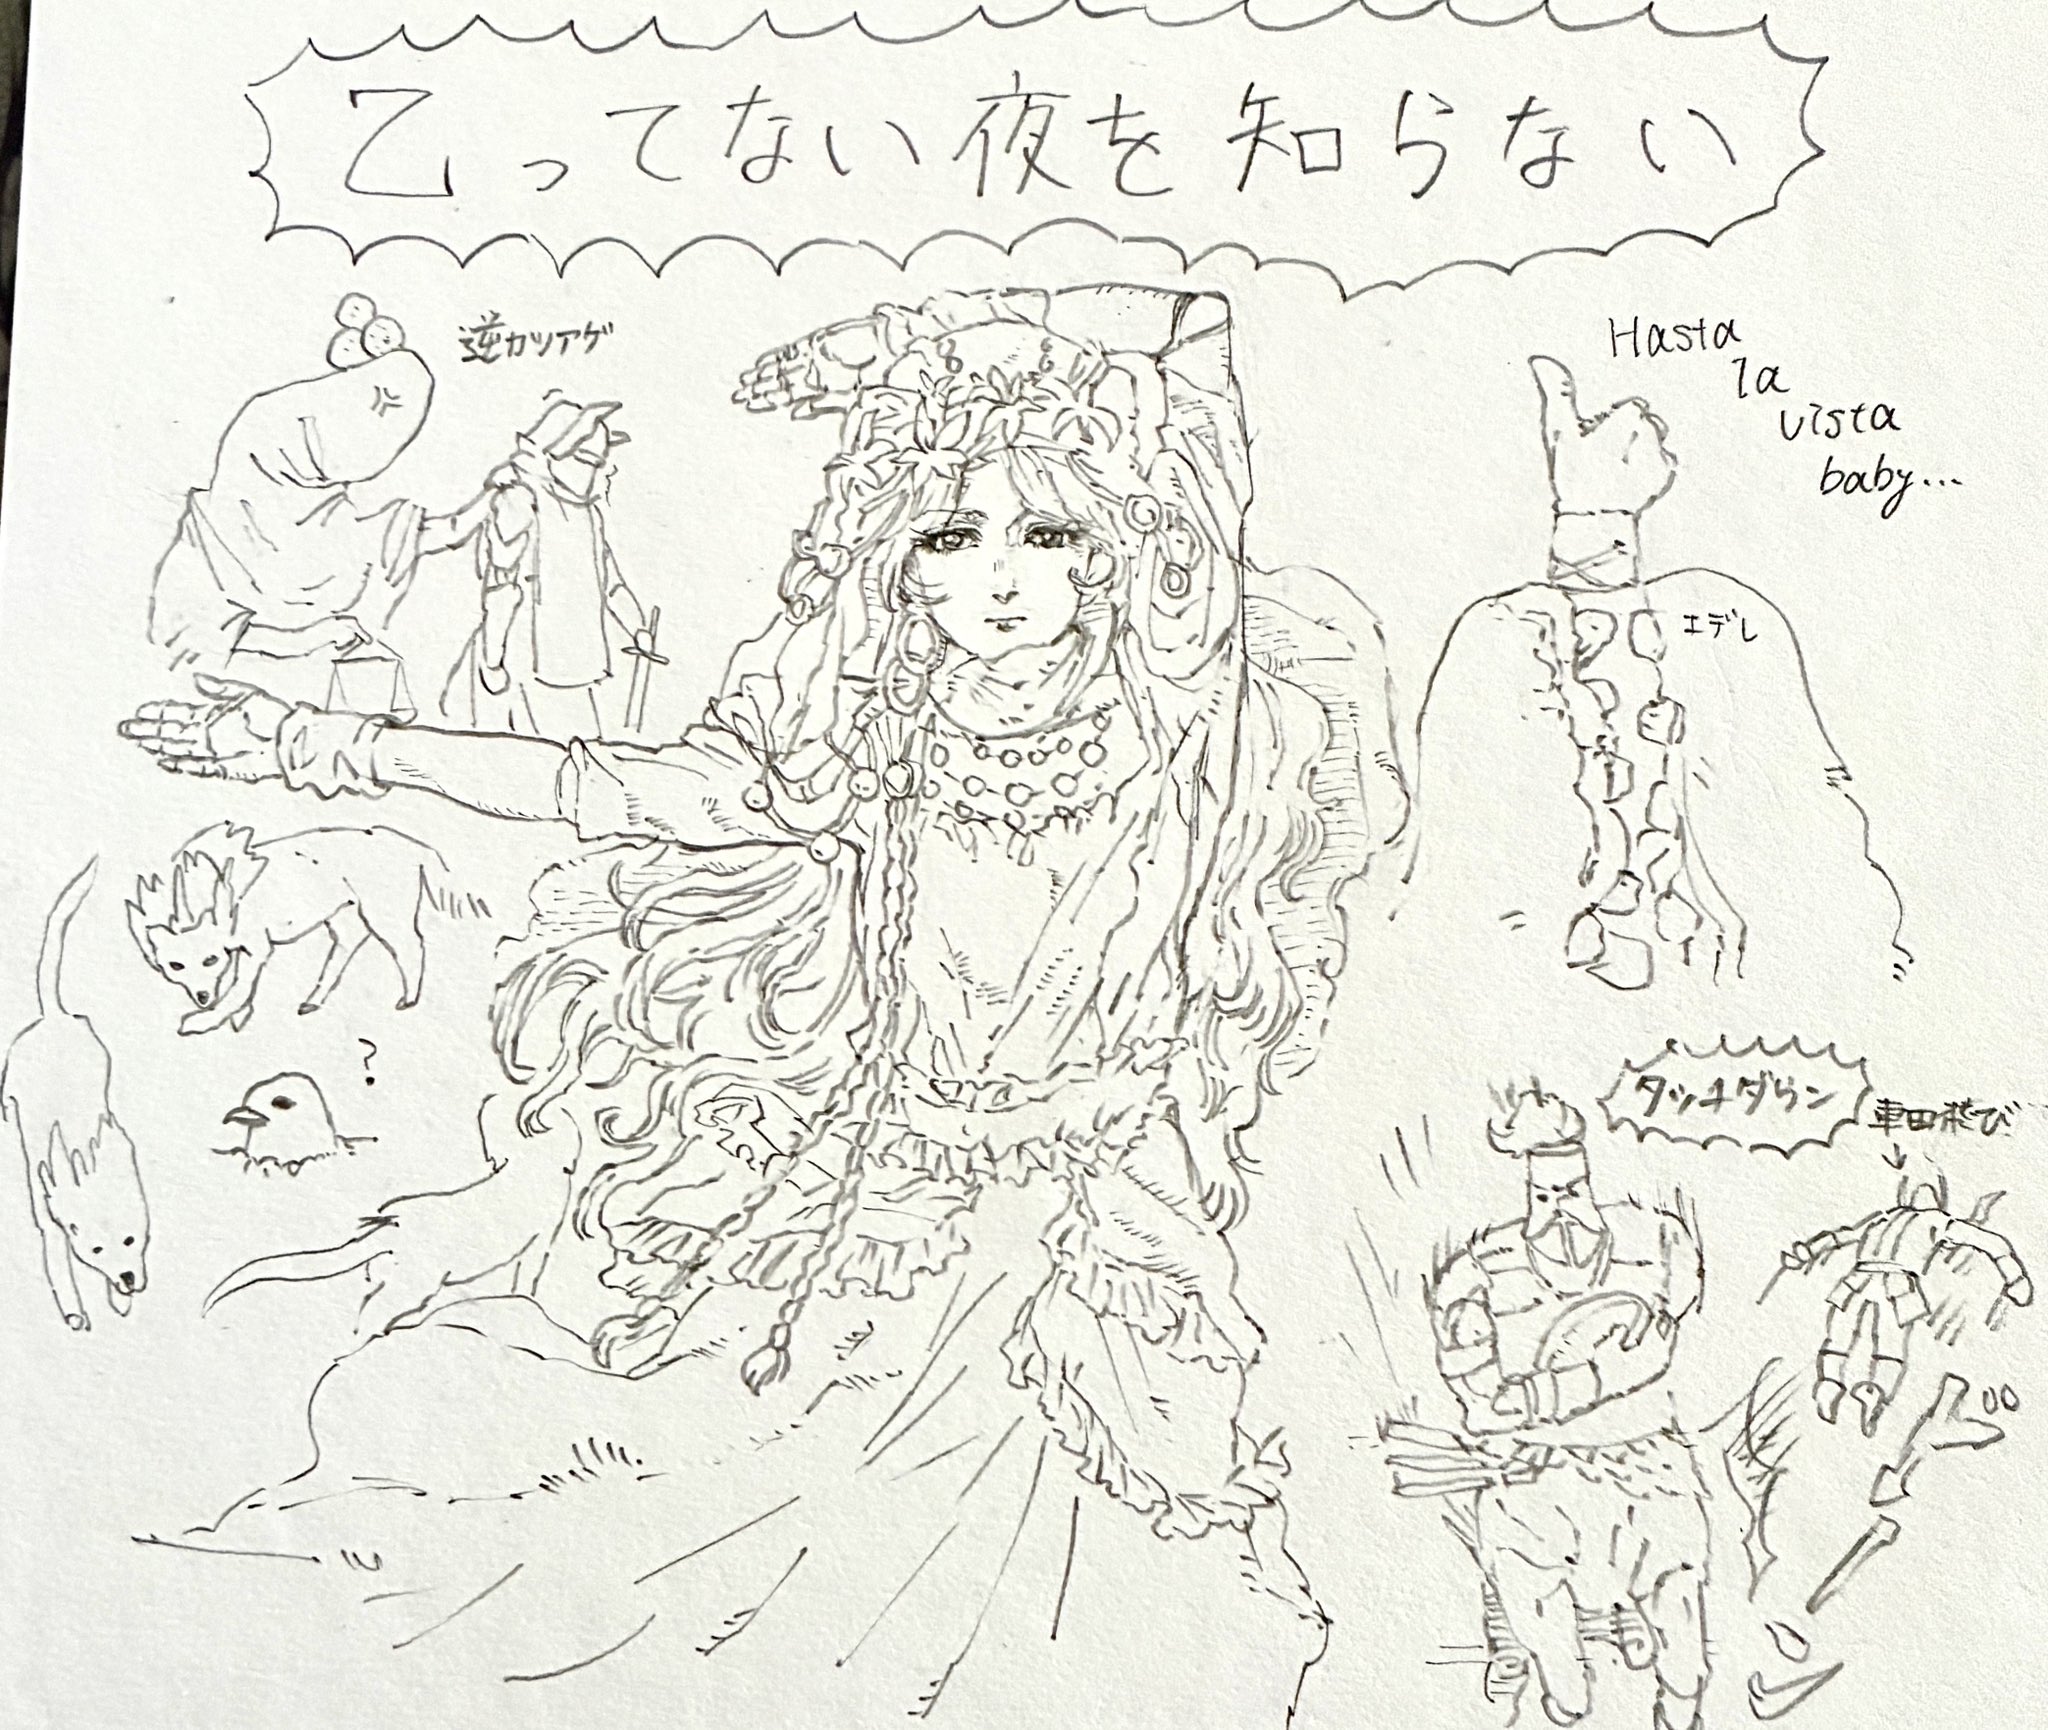 乙ってない夜を知らない
逆カツアゲ
Hasta
la
vista
baby...
エデレ
?
タッチダウン
車田飛び